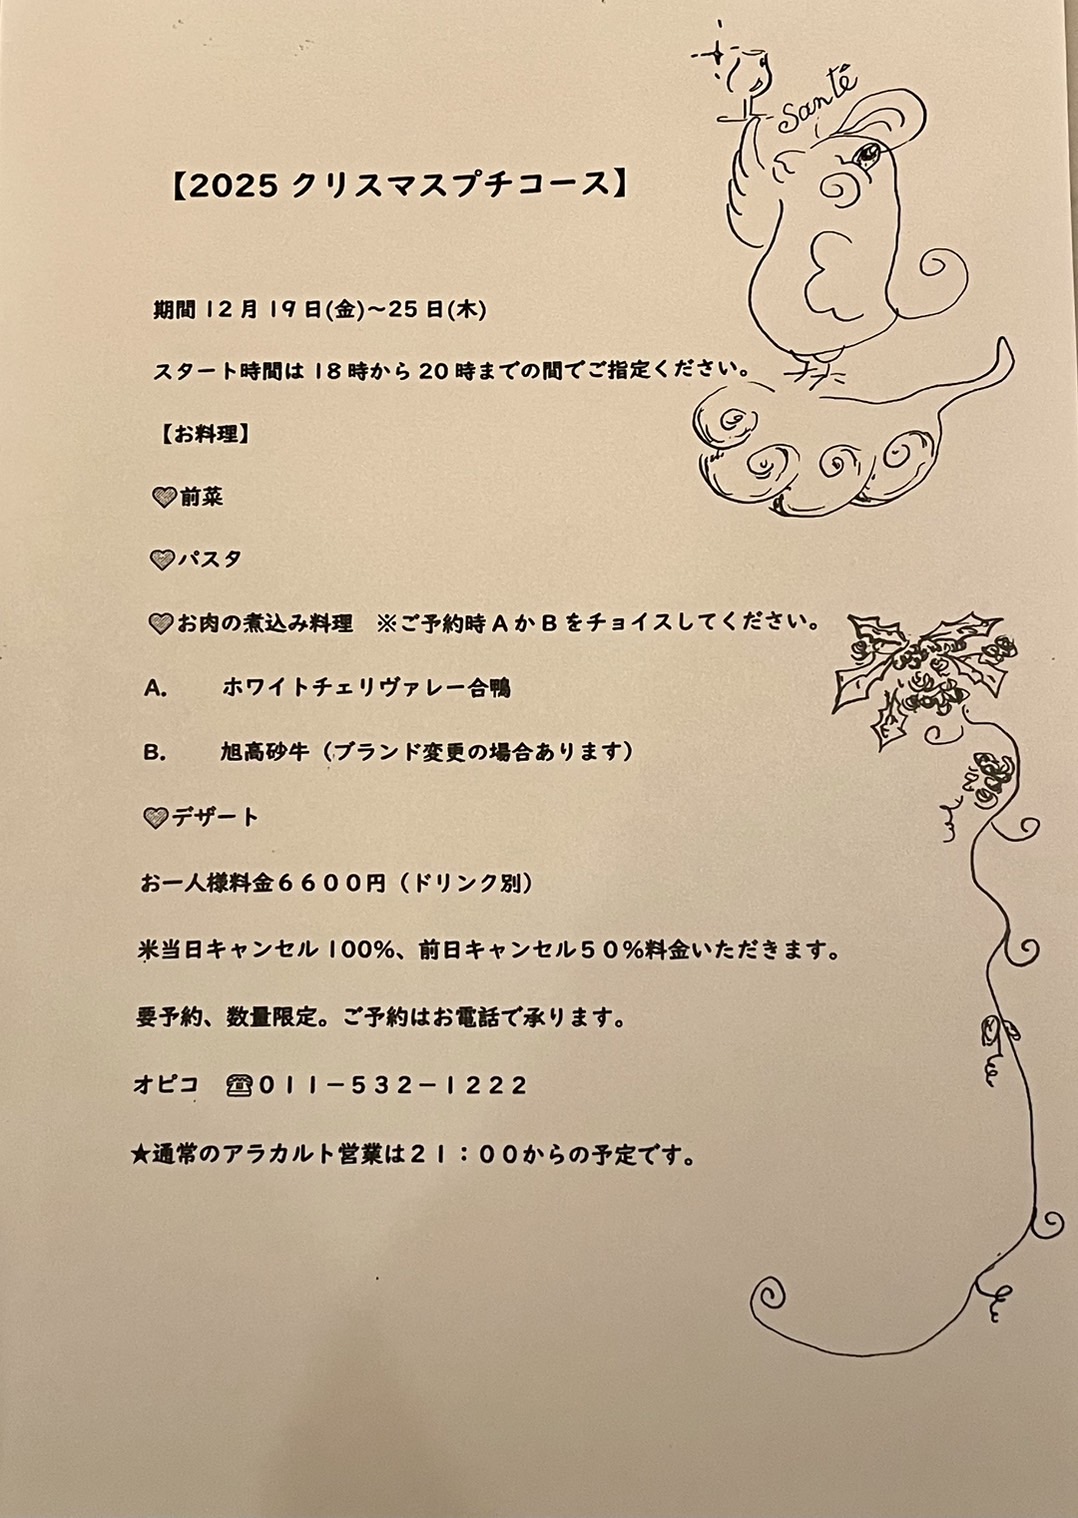 Santé
【2025 クリスマスプチコース】
期間 12 月 19 日(金)～25 日(木)
スタート時間は 18 時から 20 時までの間でご指定ください。
【お料理】
♡前菜
♡パスタ
♡お肉の煮込み料理　※ご予約時 A か B をチョイスしてください。
A.　ホワイトチェリヴァレー合鴨
B.　旭高砂牛（ブランド変更の場合あります）
♡デザート
お一人様料金６６００円（ドリンク別）
米当日キャンセル 100%、前日キャンセル５０%料金いただきます。
要予約、数量限定。ご予約はお電話で承ります。
オピコ　☎０１１－５３２－１２２２
★通常のアラカルト営業は２１：００からの予定です。